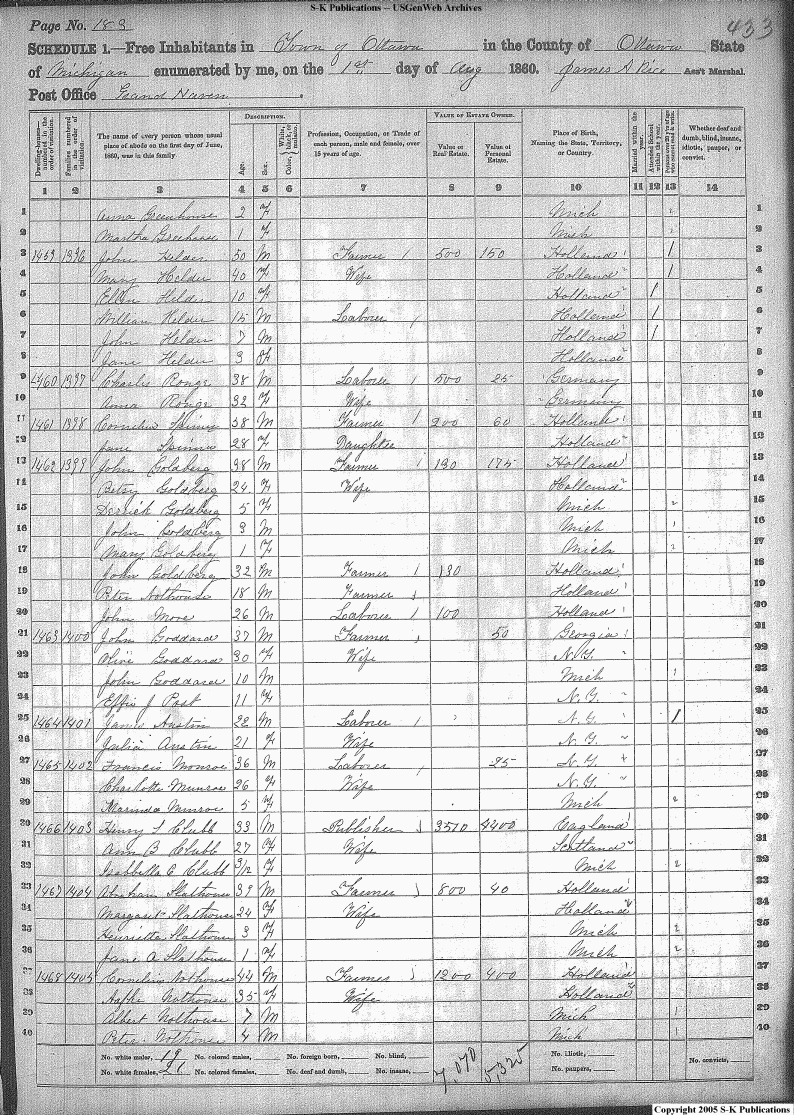 S-K Publications – USGenWeb Archives
Page No. 183
433
SCHEDULE 1.—Free Inhabitants in Town of Ottawa in the County of Ottawa State
of Michigan enumerated by me, on the 1st day of Aug 1860. James A Rice Ass't Marshal.
Post Office Grand Haven
Dwelling-houses—numbered in the order of visitation.
Families numbered in the order of visitation.
The name of every person whose usual place of abode on the first day of June, 1860, was in this family
DESCRIPTION.
Age.
Sex.
Color, White, black, or mulatto.
Profession, Occupation, or Trade of each person, male and female, over 15 years of age.
VALUE OF ESTATE OWNED.
Value of Real Estate.
Value of Personal Estate.
Place of Birth, Naming the State, Territory, or Country.
Married within the year.
Attended School within the year.
Persons over 20 y'rs of age who cannot read & write.
Whether deaf and dumb, blind, insane, idiotic, pauper, or convict.
1 2 3 4 5 6 7 8 9 10 11 12 13 14
1 Anna Greenhouse 2 F Mich 1
2 Martha Greenhouse 1 F Mich 2
3 1459 1396 John Helder 50 M Farmer 500 150 Holland 1 3
4 Mary Helder 40 F Wife Holland 1 4
5 Ellen Helder 10 F Holland 1 5
6 William Helder 15 M Laborer Holland 1 6
7 John Helder 7 M Holland 1 7
8 Jane Helder 3 F Holland 8
9 1460 1397 Charles Ronge 38 M Laborer 500 25 Germany 9
10 Anna Ronge 32 F Wife Germany 10
11 1461 1398 Cornelius 58 M Farmer 200 60 Holland 11
12 Jane 28 F Daughter Holland 12
13 1462 1399 John Goldberg 38 M Farmer 130 175 Holland 13
14 Betsy Goldberg 24 F Wife Holland 14
15 Derrick Goldberg 5 F Mich 15
16 John Goldberg 3 M Mich 16
17 Mary Goldberg 1 F Mich 17
18 John Goldberg 32 M Farmer 130 Holland 18
19 Peter Nothouse 18 M Farmer Holland 19
20 John More 26 M Laborer 100 Holland 20
21 1463 1400 John Goddard 37 M Farmer 50 Georgia 21
22 Olive Goddard 30 F Wife N.Y. 22
23 John Goddard 10 M Mich 23
24 Effie J Post 11 F N.Y. 24
25 1464 1401 James Austin 22 M Laborer N.Y. 1 25
26 Julia Austin 21 F Wife N.Y. 26
27 1465 1402 Francis Monroe 36 M Laborer 25 N.Y. 27
28 Charlotte Munroe 26 F Wife N.Y. 28
29 Marinda Munroe 5 F Mich 29
30 1466 1403 Henry S Clubb 33 M Publisher 3510 4400 England 30
31 Ann B Clubb 27 F Wife Scotland 31
32 Isabbella C Clubb 3/12 F Mich 32
33 1467 1404 Abraham Slathouse 39 M Farmer 800 40 Holland 33
34 Margaret Slathouse 24 F Wife Holland 34
35 Henrietta Slathouse 3 F Mich 35
36 Jane A Slathouse 1 F Mich 36
37 1468 1405 Cornelius Nothouse 44 M Farmer 1200 400 Holland 37
38 Nothouse 35 F Wife Holland 38
39 Albert Nothouse 7 M Mich 39
40 Peter Nothouse 4 M Mich 40
No. white males, 19 No. colored males, No. foreign born, No. blind, 7,070 5,325 No. idiotic, No. convicts,
No. white females, 21 No. colored females, No. deaf and dumb, No. insane, No. paupers,
Copyright 2005 S-K Publications